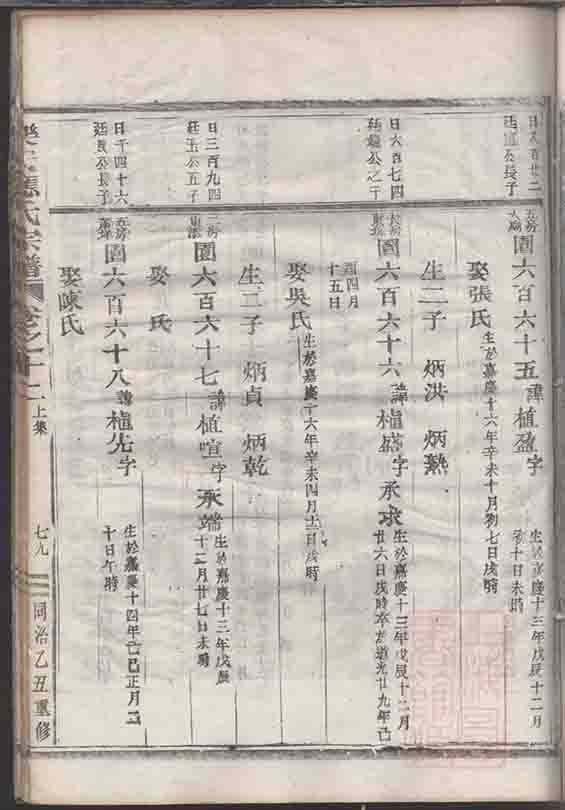 五房
園六百六十五諱植盈字
生於嘉慶十三年戊辰十二月
初十日未時
娶張氏
生於嘉慶十六年辛未十月初七日戌時
生二子 炳洪 炳熱
日六百七四
園六百六十六諱植盛字承求
生於嘉慶十三年戊辰十二月
廿六日戌時卒於道光廿九年己
酉四月
十五日
娶吳氏
生於嘉慶十六年辛未四月十二日戌時
生二子 炳貞 炳乾
日三百九四
廷玉公五子
園六百六十七諱植喧字承端
生於嘉慶十三年戊辰
十二月廿七日未時
娶 氏
日千四十六
廷良公長子
五房
園六百六十八諱植先字
生於嘉慶十四年己巳正月二
十日午時
娶陳氏
氏宗譜
卷之十二
上集
七九
同治乙丑重修